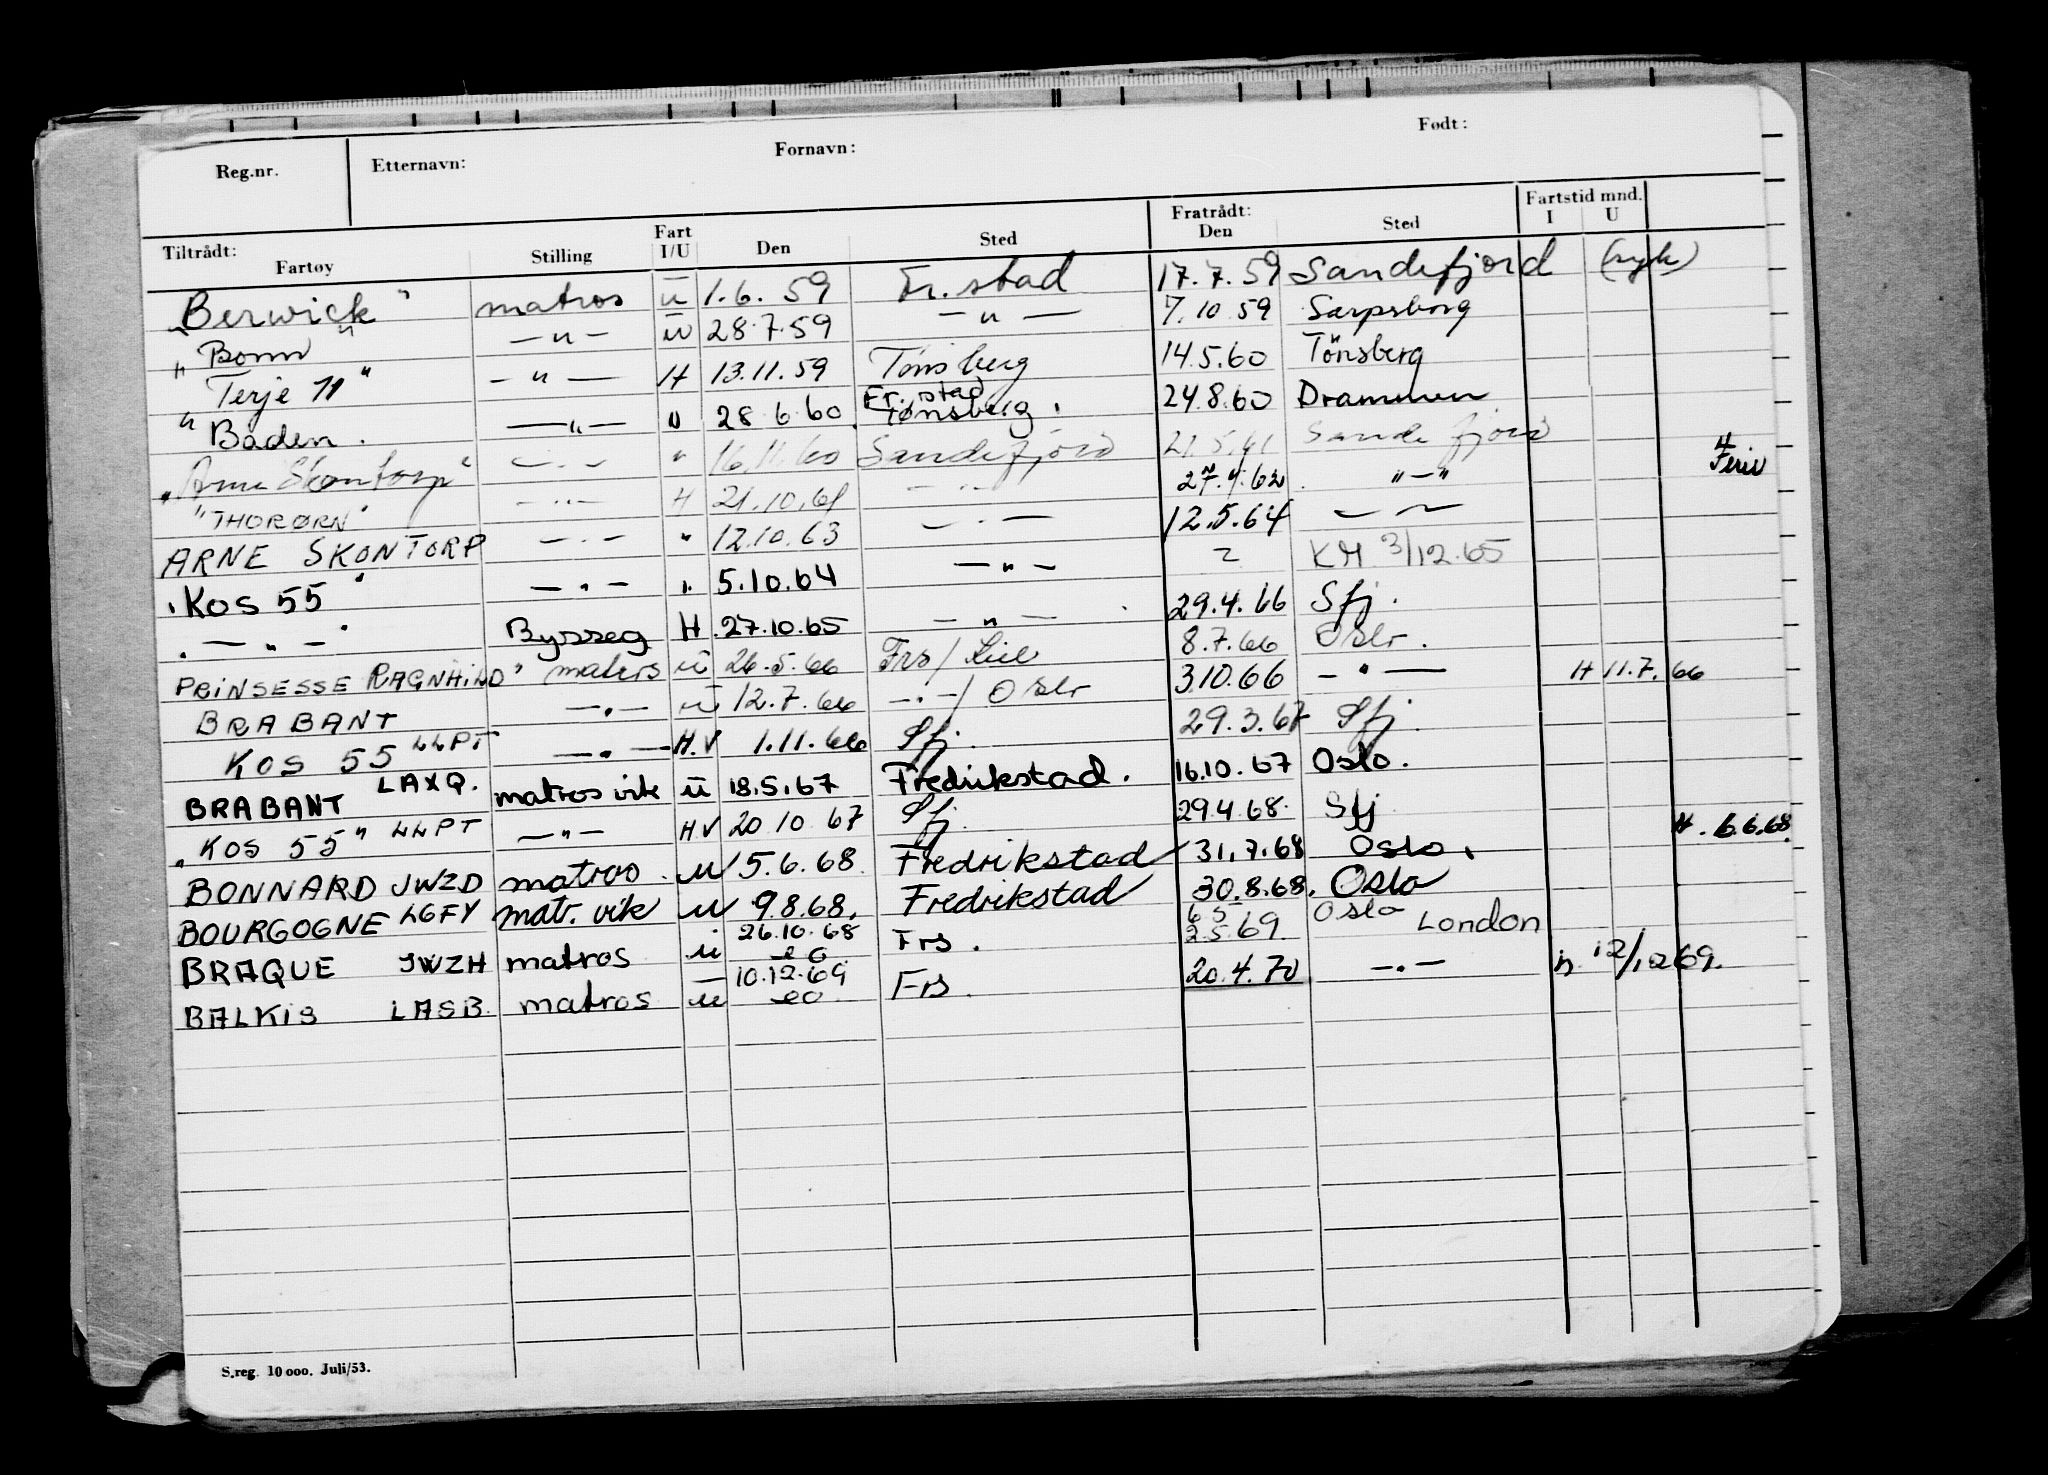 Reg.nr. Etternavn: Fornavn: Født:
Tiltrådt: Fartøy Stilling Fart I/U Den Sted Fratrådt: Den Sted Fartstid mnd. I U
"Berwick" matros u 1.6.59 Fr.stad 17.7.59 Sandefjord (syk)
"Bonn" — " — u 28.7.59 — " — 7.10.59 Sarpsborg
"Terje 11" — " — H 13.11.59 Tønsberg 14.5.60 Tönsberg
"Baden. — " — U 28 6 60. Fr.stad Tønsberg. 24.8.60 Drammen
"Arne Skontorp" — " — " 16.11.60 Sandefjord 21.5.61 Sandefjord
"THORØRN" — " — H 21.10.61 — " — 27.4.62 " — " Ferie
ARNE SKONTORP — " — " 12.10.63 — " — 12.5.64 — " —
"KOS 55" — " — " 5.10.64 — " — KH 3/12.65
" — " — " Bysseg H 27.10.65 — " — 29.4.66 Sfj.
PRINSESSE RAGNHILD" matros u 26.5.66 Frs/Kiel 8.7.66 Oslo.
BRABANT — " — u 12.7.66 — " —/Oslo 3.10.66 — " — H 11.7.66
KOS 55 LLPT — " — H.V 1.11.66 Sfj. 29.3.67 Sfj.
BRABANT LAXQ. matros vik u 18.5.67 Fredrikstad. 16.10.67 Oslo.
"KOS 55" LLPT — " — HV 20 10 67 Sfj. 29.4.68. Sfj
BONNARD JWZD matros. u 5.6.68. Fredrikstad 31.7.68 Oslo. H. 6.6.68.
BOURGOGNE LGFY mat. vik u 9.8.68. Fredrikstad 30.8.68. Oslo
BRAQUE JWZH matros u 26.10.68 Frs. 6 5 2.5.69. Oslo London
BALKIS LASB. matros u 10.12.69 Frs. 20.4.70 — " — 12/12 69.
S.reg. 10 000. Juli/53.